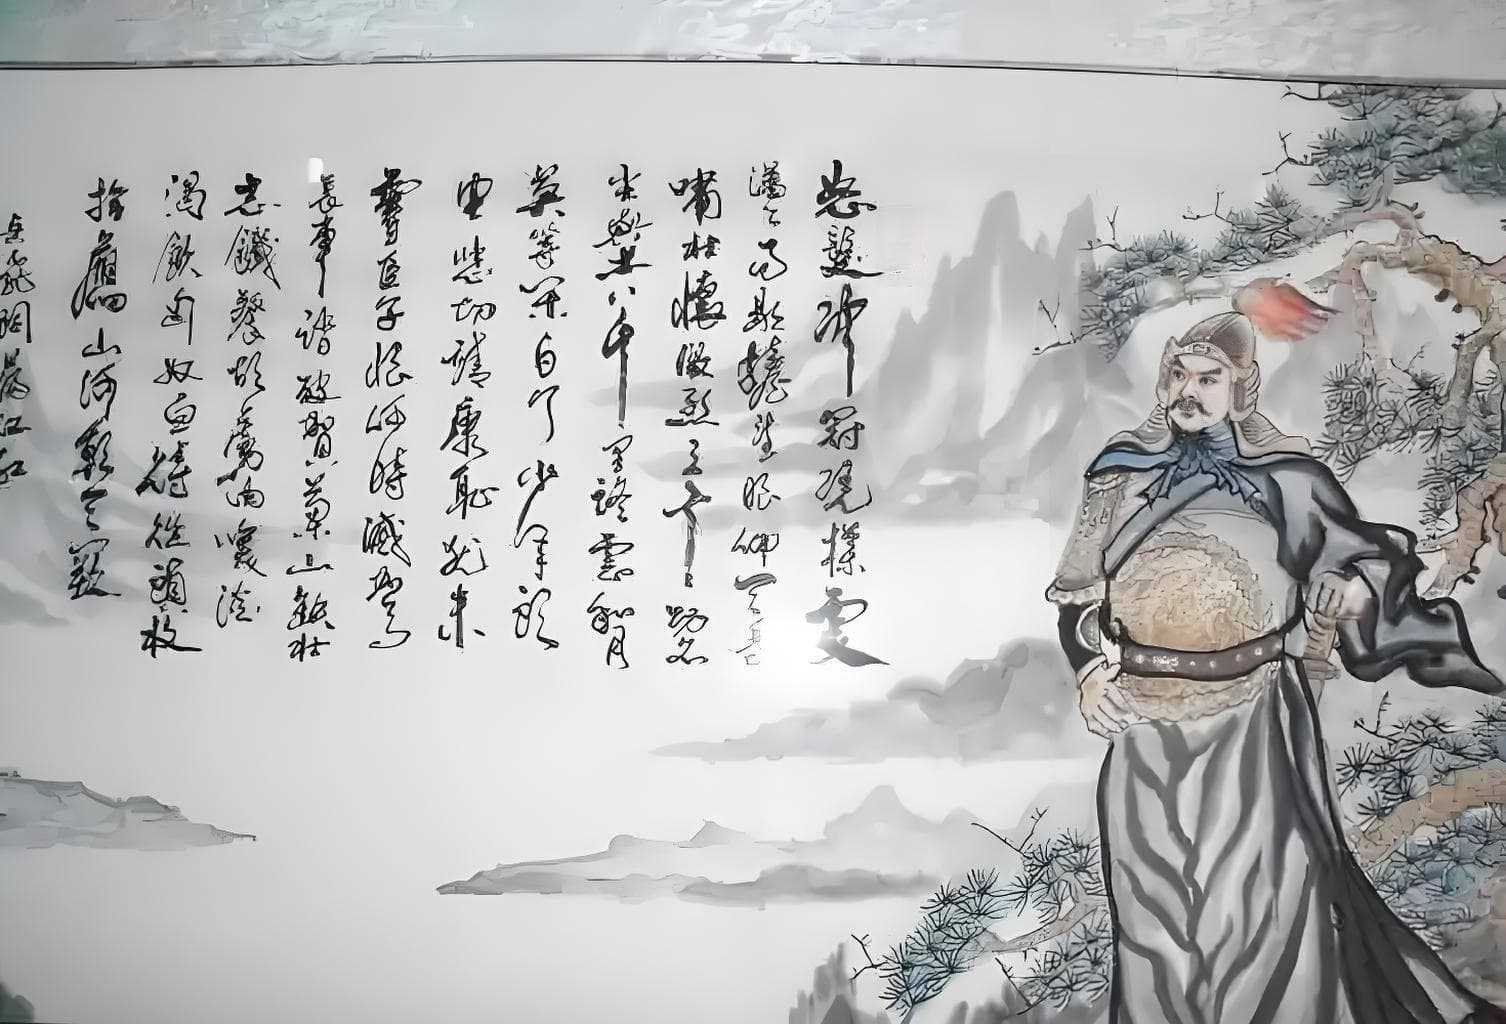 怒髮冲冠凭欄處
瀟瀟雨歇擡望眼仰天長
嘯壯懷激烈三十功名
尘與土八千里路雲和月
莫等閑白了少年頭
空悲切靖康恥猶未
雪臣子恨何時滅駕
長車踏破賀蘭山缺壯
志饑餐胡虜肉笑談
渴飲匈奴血待從頭收
拾舊山河朝天闕
岳飛詞滿江紅